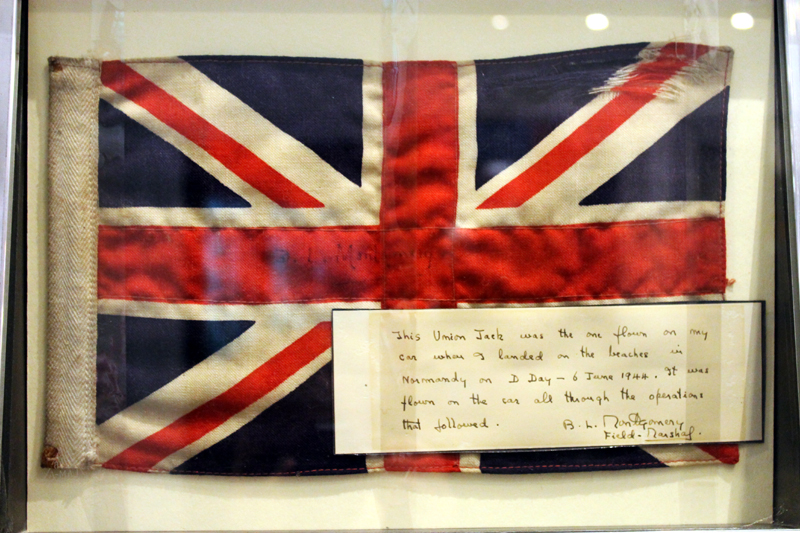 This Union Jack was the one flown on my
car when I landed on the beaches in
Normandy on D Day - 6 June 1944. It was
flown on the car all through the operations
that followed. B. L. Montgomery
Field-Marshal.